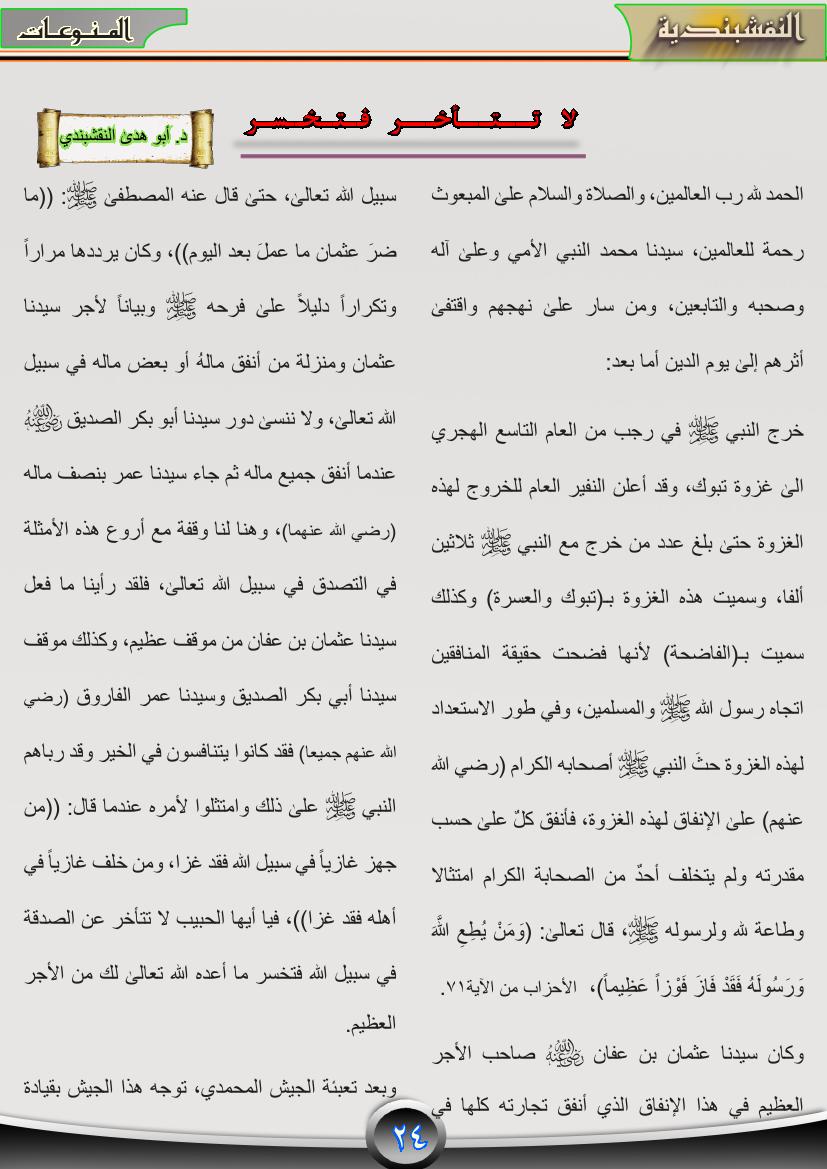 النقشبندية
المنوعات
لا تتأخر فتخسر
د. أبو هدى النقشبندي
الحمد لله رب العالمين، والصلاة والسلام على المبعوث
رحمة للعالمين، سيدنا محمد النبي الأمي وعلى آله
وصحبه والتابعين، ومن سار على نهجهم واقتفى
أثرهم إلى يوم الدين أما بعد:
خرج النبي ﷺ في رجب من العام التاسع الهجري
الى غزوة تبوك، وقد أعلن النفير العام للخروج لهذه
الغزوة حتى بلغ عدد من خرج مع النبي ﷺ ثلاثين
ألفا، وسميت هذه الغزوة بـ(تبوك والعسرة) وكذلك
سميت بـ(الفاضحة) لأنها فضحت حقيقة المنافقين
اتجاه رسول الله ﷺ والمسلمين، وفي طور الاستعداد
لهذه الغزوة حثَ النبي ﷺ أصحابه الكرام (رضي الله
عنهم) على الإنفاق لهذه الغزوة، فأنفق كلٌ على حسب
مقدرته ولم يتخلف أحدٌ من الصحابة الكرام امتثالا
وطاعة لله ولرسوله ﷺ، قال تعالى: (وَمَنْ يُطِعِ اللَّهَ
وَرَسُولَهُ فَقَدْ فَازَ فَوْزاً عَظِيماً)، الأحزاب من الآية٧١.
وكان سيدنا عثمان بن عفان رضي الله عنه صاحب الأجر
العظيم في هذا الإنفاق الذي أنفق تجارته كلها في
سبيل الله تعالى، حتى قال عنه المصطفى ﷺ: ((ما
ضرَ عثمان ما عملَ بعد اليوم))، وكان يرددها مراراً
وتكراراً دليلاً على فرحه ﷺ وبياناً لأجر سيدنا
عثمان ومنزلة من أنفق مالهُ أو بعض ماله في سبيل
الله تعالى، ولا ننسى دور سيدنا أبو بكر الصديق رضي الله عنه
عندما أنفق جميع ماله ثم جاء سيدنا عمر بنصف ماله
(رضي الله عنهما)، وهنا لنا وقفة مع أروع هذه الأمثلة
في التصدق في سبيل الله تعالى، فلقد رأينا ما فعل
سيدنا عثمان بن عفان من موقف عظيم، وكذلك موقف
سيدنا أبي بكر الصديق وسيدنا عمر الفاروق (رضي
الله عنهم جميعا) فقد كانوا يتنافسون في الخير وقد رباهم
النبي ﷺ على ذلك وامتثلوا لأمره عندما قال: ((من
جهز غازياً في سبيل الله فقد غزا، ومن خلف غازياً في
أهله فقد غزا))، فيا أيها الحبيب لا تتأخر عن الصدقة
في سبيل الله فتخسر ما أعده الله تعالى لك من الأجر
العظيم.
وبعد تعبئة الجيش المحمدي، توجه هذا الجيش بقيادة
٢٤